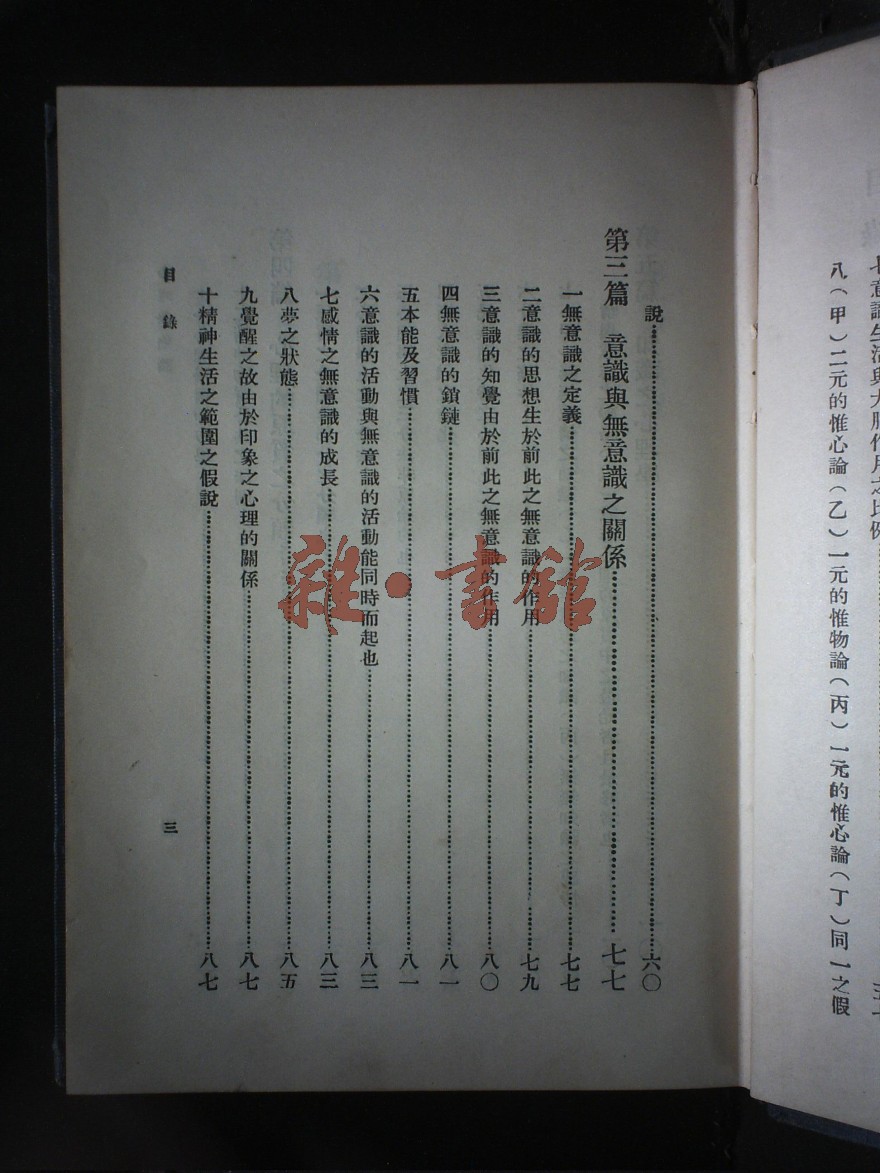 七意識生活與大腦作用之比例
八（甲）二元的惟心論（乙）一元的惟物論（丙）一元的惟心論（丁）同一之假
說……六〇
第三篇　意識與無意識之關係……七七
一無意識之定義……七七
二意識的思想生於前此之無意識的作用……七九
三意識的知覺由於前此之無意識的作用……八〇
四無意識的鎖鏈……八一
五本能及習慣……八一
六意識的活動與無意識的活動能同時而起也……八三
七感情之無意識的成長……八三
八夢之狀態……八五
九覺醒之故由於印象之心理的關係……八七
十精神生活之範圍之假說……八七
目錄
三
雜·書館